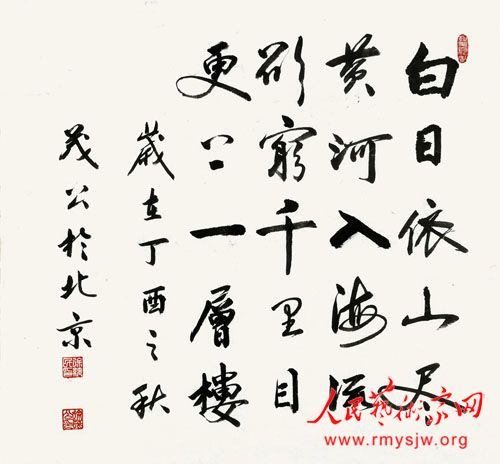 白日依山尽
黄河入海流
欲窮千里目
更上一層樓
歲在丁酉之秋
茂公於北京
人民藝術家网
www.rmysjw.org